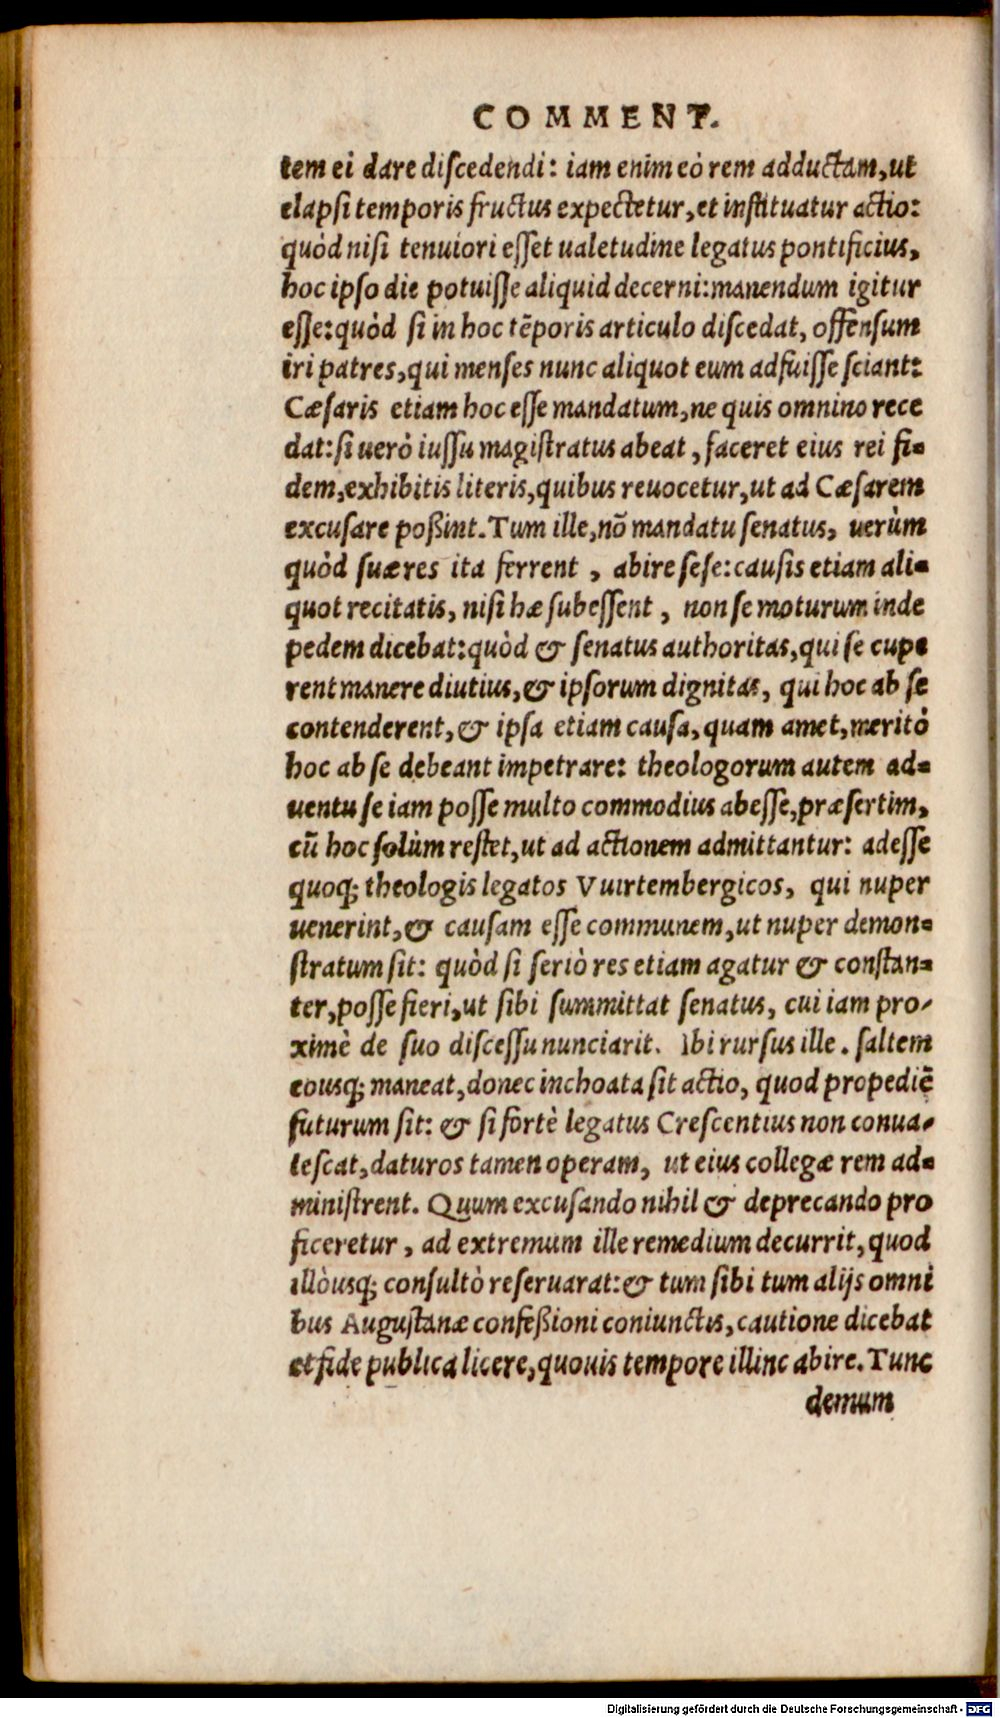 COMMENT.
tem ei dare diſcedendi: iam enim eò rem adductam, ut
elapſi temporis fructus expectetur, et inſtituatur actio:
quòd niſi tenuiori eſſet ualetudine legatus pontificius,
hoc ipſo die potuiſſe aliquid decerni: manendum igitur
eſſe: quòd ſi in hoc tẽporis articulo diſcedat, offenſum
iri patres, qui menſes nunc aliquot eum adfuiſſe ſciant:
Cæſaris etiam hoc eſſe mandatum, ne quis omnino rece
dat: ſi uerò iuſſu magiſtratus abeat, faceret eius rei fi-
dem, exhibitis literis, quibus reuocetur, ut ad Cæſarem
excuſare poßint. Tum ille, nõ mandatu ſenatus, uerùm
quòd ſuæ res ita ferrent, abire ſeſe: cauſis etiam ali-
quot recitatis, niſi hæ ſubeſſent, non ſe moturum inde
pedem dicebat: quòd & ſenatus authoritas, qui ſe cupe
rent manere diutius, & ipſorum dignitas, qui hoc ab ſe
contenderent, & ipſa etiam cauſa, quam amet, meritò
hoc ab ſe debeant impetrare: theologorum autem ad-
uentu ſe iam poſſe multo commodius abeſſe, præſertim,
cũ hoc ſolùm reſtet, ut ad actionem admittantur: adeſſe
quoq; theologis legatos Vuirtembergicos, qui nuper
uenerint, & cauſam eſſe communem, ut nuper demon-
ſtratum ſit: quòd ſi ſeriò res etiam agatur & conſtan-
ter, poſſe fieri, ut ſibi ſummittat ſenatus, cui iam pro-
ximè de ſuo diſceſſu nunciarit. Ibi rurſus ille. ſaltem
eousq; maneat, donec inchoata ſit actio, quod propediẽ
futurum ſit: & ſi fortè legatus Creſcentius non conua-
leſcat, daturos tamen operam, ut eius collegæ rem ad-
miniſtrent. Quum excuſando nihil & deprecando pro
ficeretur, ad extremum ille remedium decurrit, quod
illòusq; conſultò reſeruarat: & tum ſibi tum alijs omni
bus Auguſtanæ confeßioni coniunctis, cautione dicebat
et fide publica licere, quouis tempore illinc abire. Tunc
demum
Digitalisierung gefördert durch die Deutsche Forschungsgemeinschaft - DFG